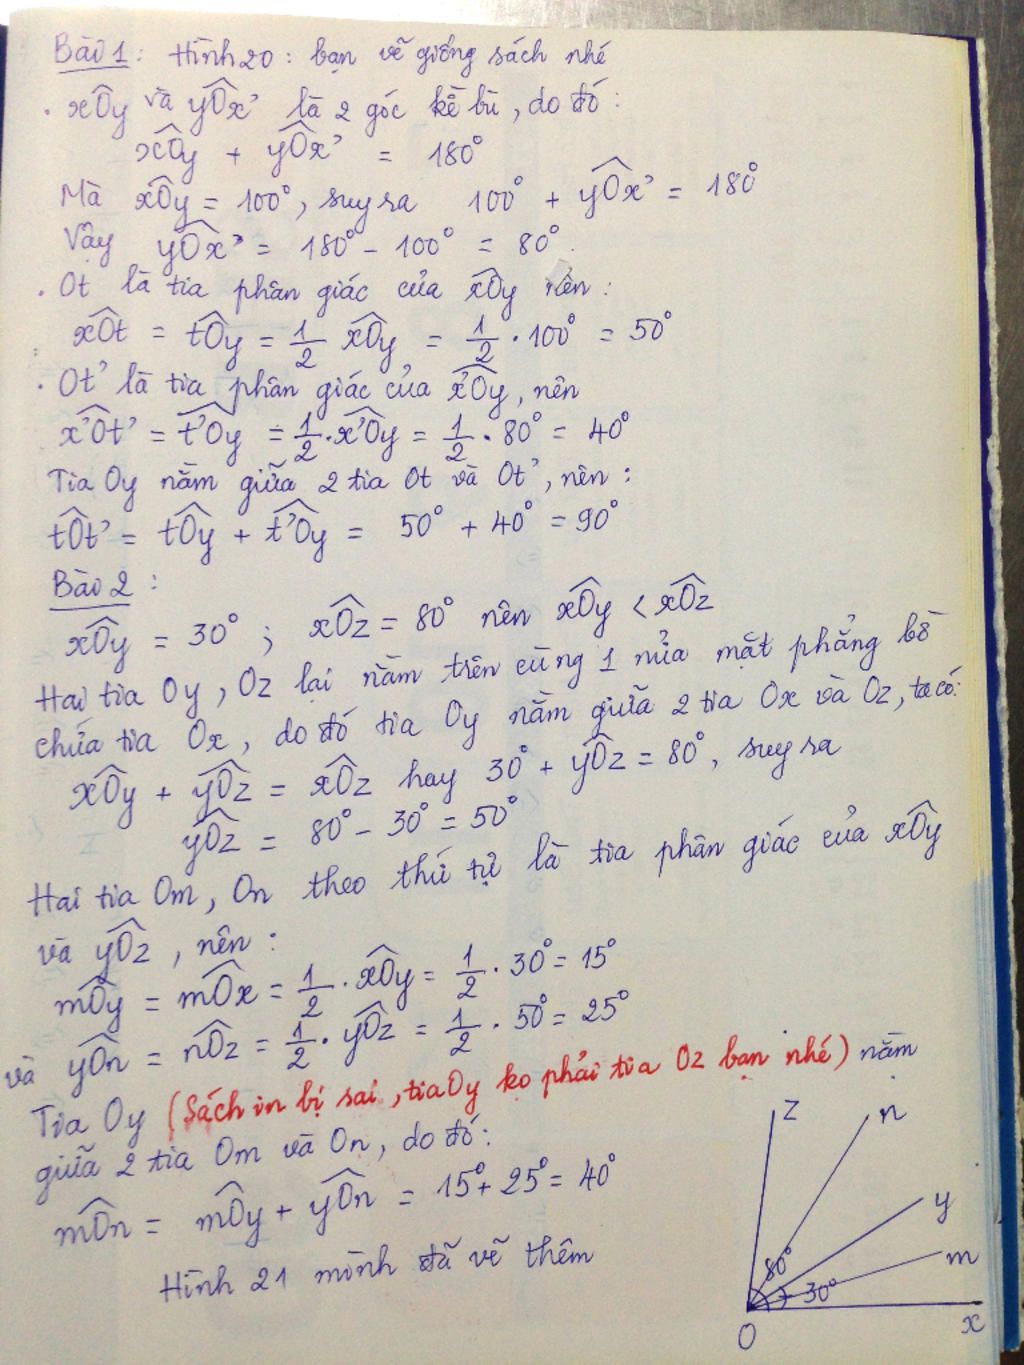 Bài 1 : Hình 20 : bạn vẽ giống sách nhé
. xÔy và yÔx' là 2 góc kề bù, do đó :
xÔy + yÔx' = 180°
Mà xÔy = 100°, suy ra 100° + yÔx' = 180°
Vậy yÔx' = 180° - 100° = 80°.
. Ot là tia phân giác của xÔy nên :
xÔt = tÔy = 1/2 xÔy = 1/2 . 100° = 50°
. Ot' là tia phân giác của x'Ôy, nên
x'Ôt' = t'Ôy = 1/2 . x'Ôy = 1/2 . 80° = 40°
Tia Oy nằm giữa 2 tia Ot và Ot', nên :
tÔt' = tÔy + t'Ôy = 50° + 40° = 90°
Bài 2 :
xÔy = 30° ; xÔz = 80° nên xÔy < xÔz
Hai tia Oy, Oz lại nằm trên cùng 1 nửa mặt phẳng bờ
chứa tia Ox, do đó tia Oy nằm giữa 2 tia Ox và Oz, ta có:
xÔy + yÔz = xÔz hay 30° + yÔz = 80°, suy ra
yÔz = 80° - 30° = 50°
Hai tia Om, On theo thứ tự là tia phân giác của xÔy
và yÔz, nên :
mÔy = mÔx = 1/2 . xÔy = 1/2 . 30° = 15°
và yÔn = nÔz = 1/2 . yÔz = 1/2 . 50° = 25°
Tia Oy (Sách in bị sai, tia Oy ko phải tia Oz bạn nhé) nằm
giữa 2 tia Om và On, do đó :
mÔn = mÔy + yÔn = 15° + 25° = 40°
Hình 21 mình đã vẽ thêm
z n
y
m
80°
30°
O x